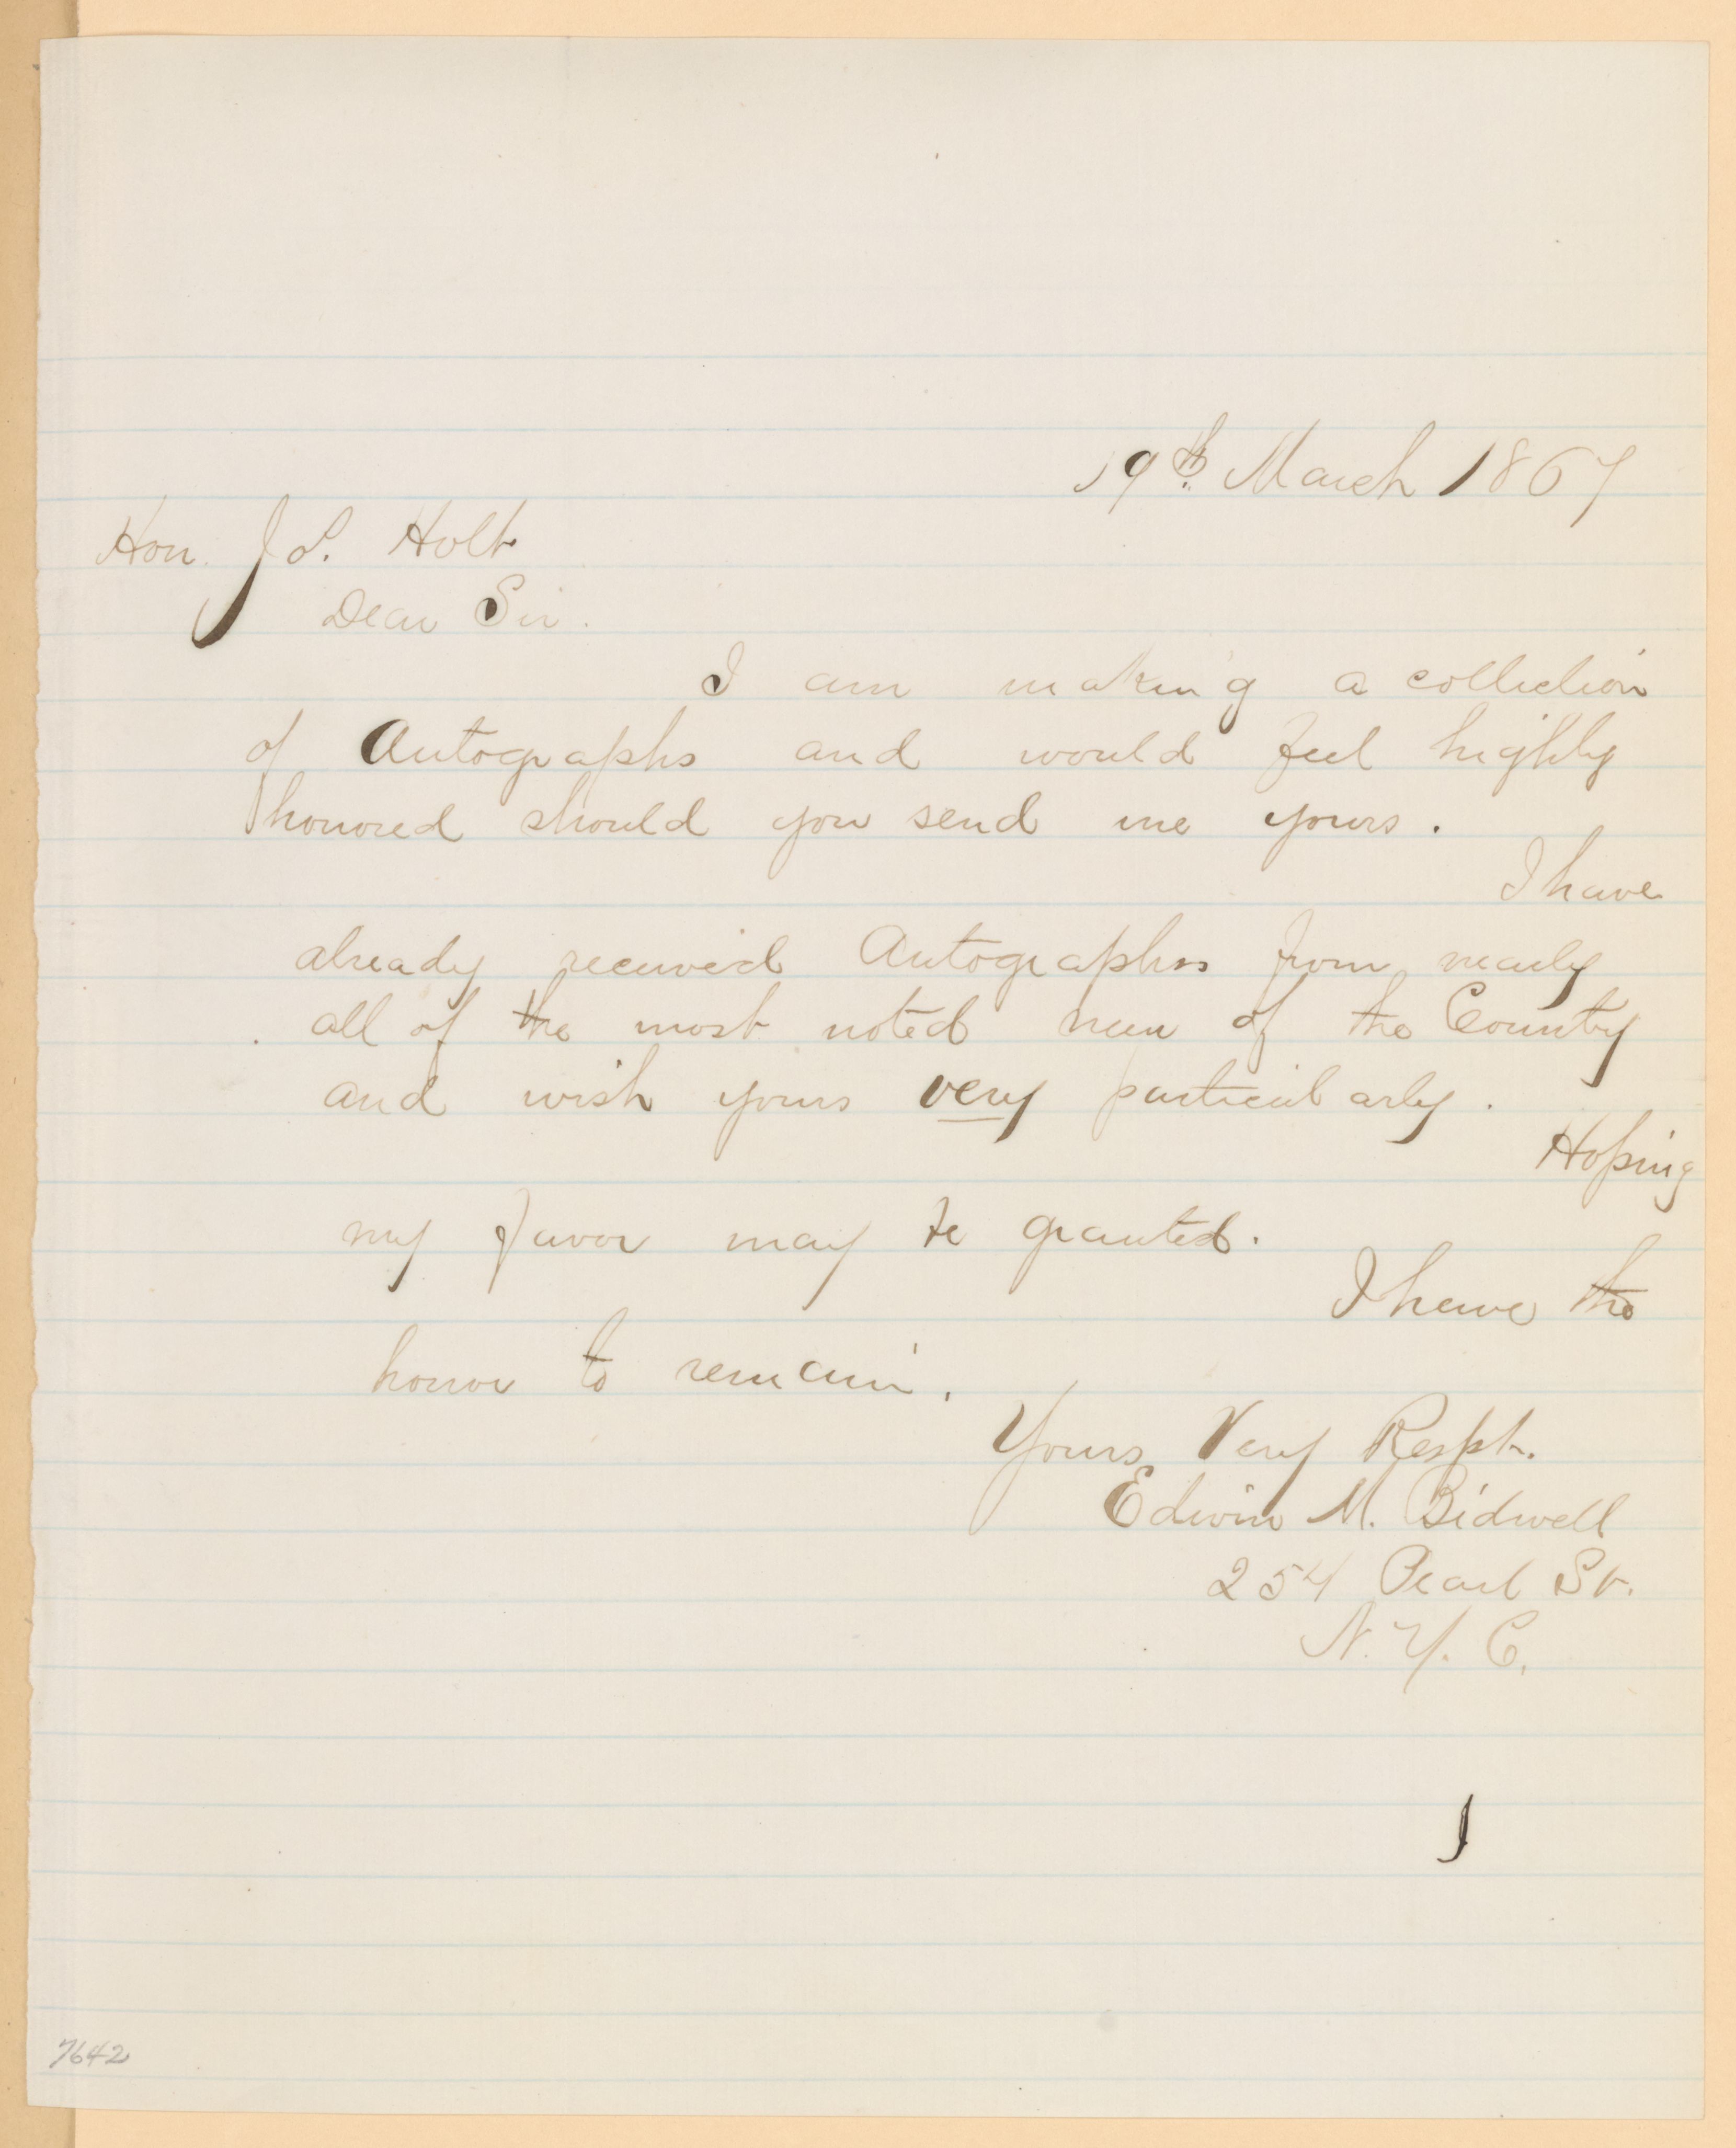 19th. March 1867
Hon. J. S. Holt
Dear Sir.
I am making a collection
of Autographs and would feel highly
honored should you send me yours.
I have
already received Autographs from nearly
all of the most noted men of the Country
and wish yours very particularly.
Hoping
my favor may be granted.
I have the
honor to remain.
Yours Very Respt.
Edwin M. Bidwell
254 Pearl St.
N. Y. C.
7642